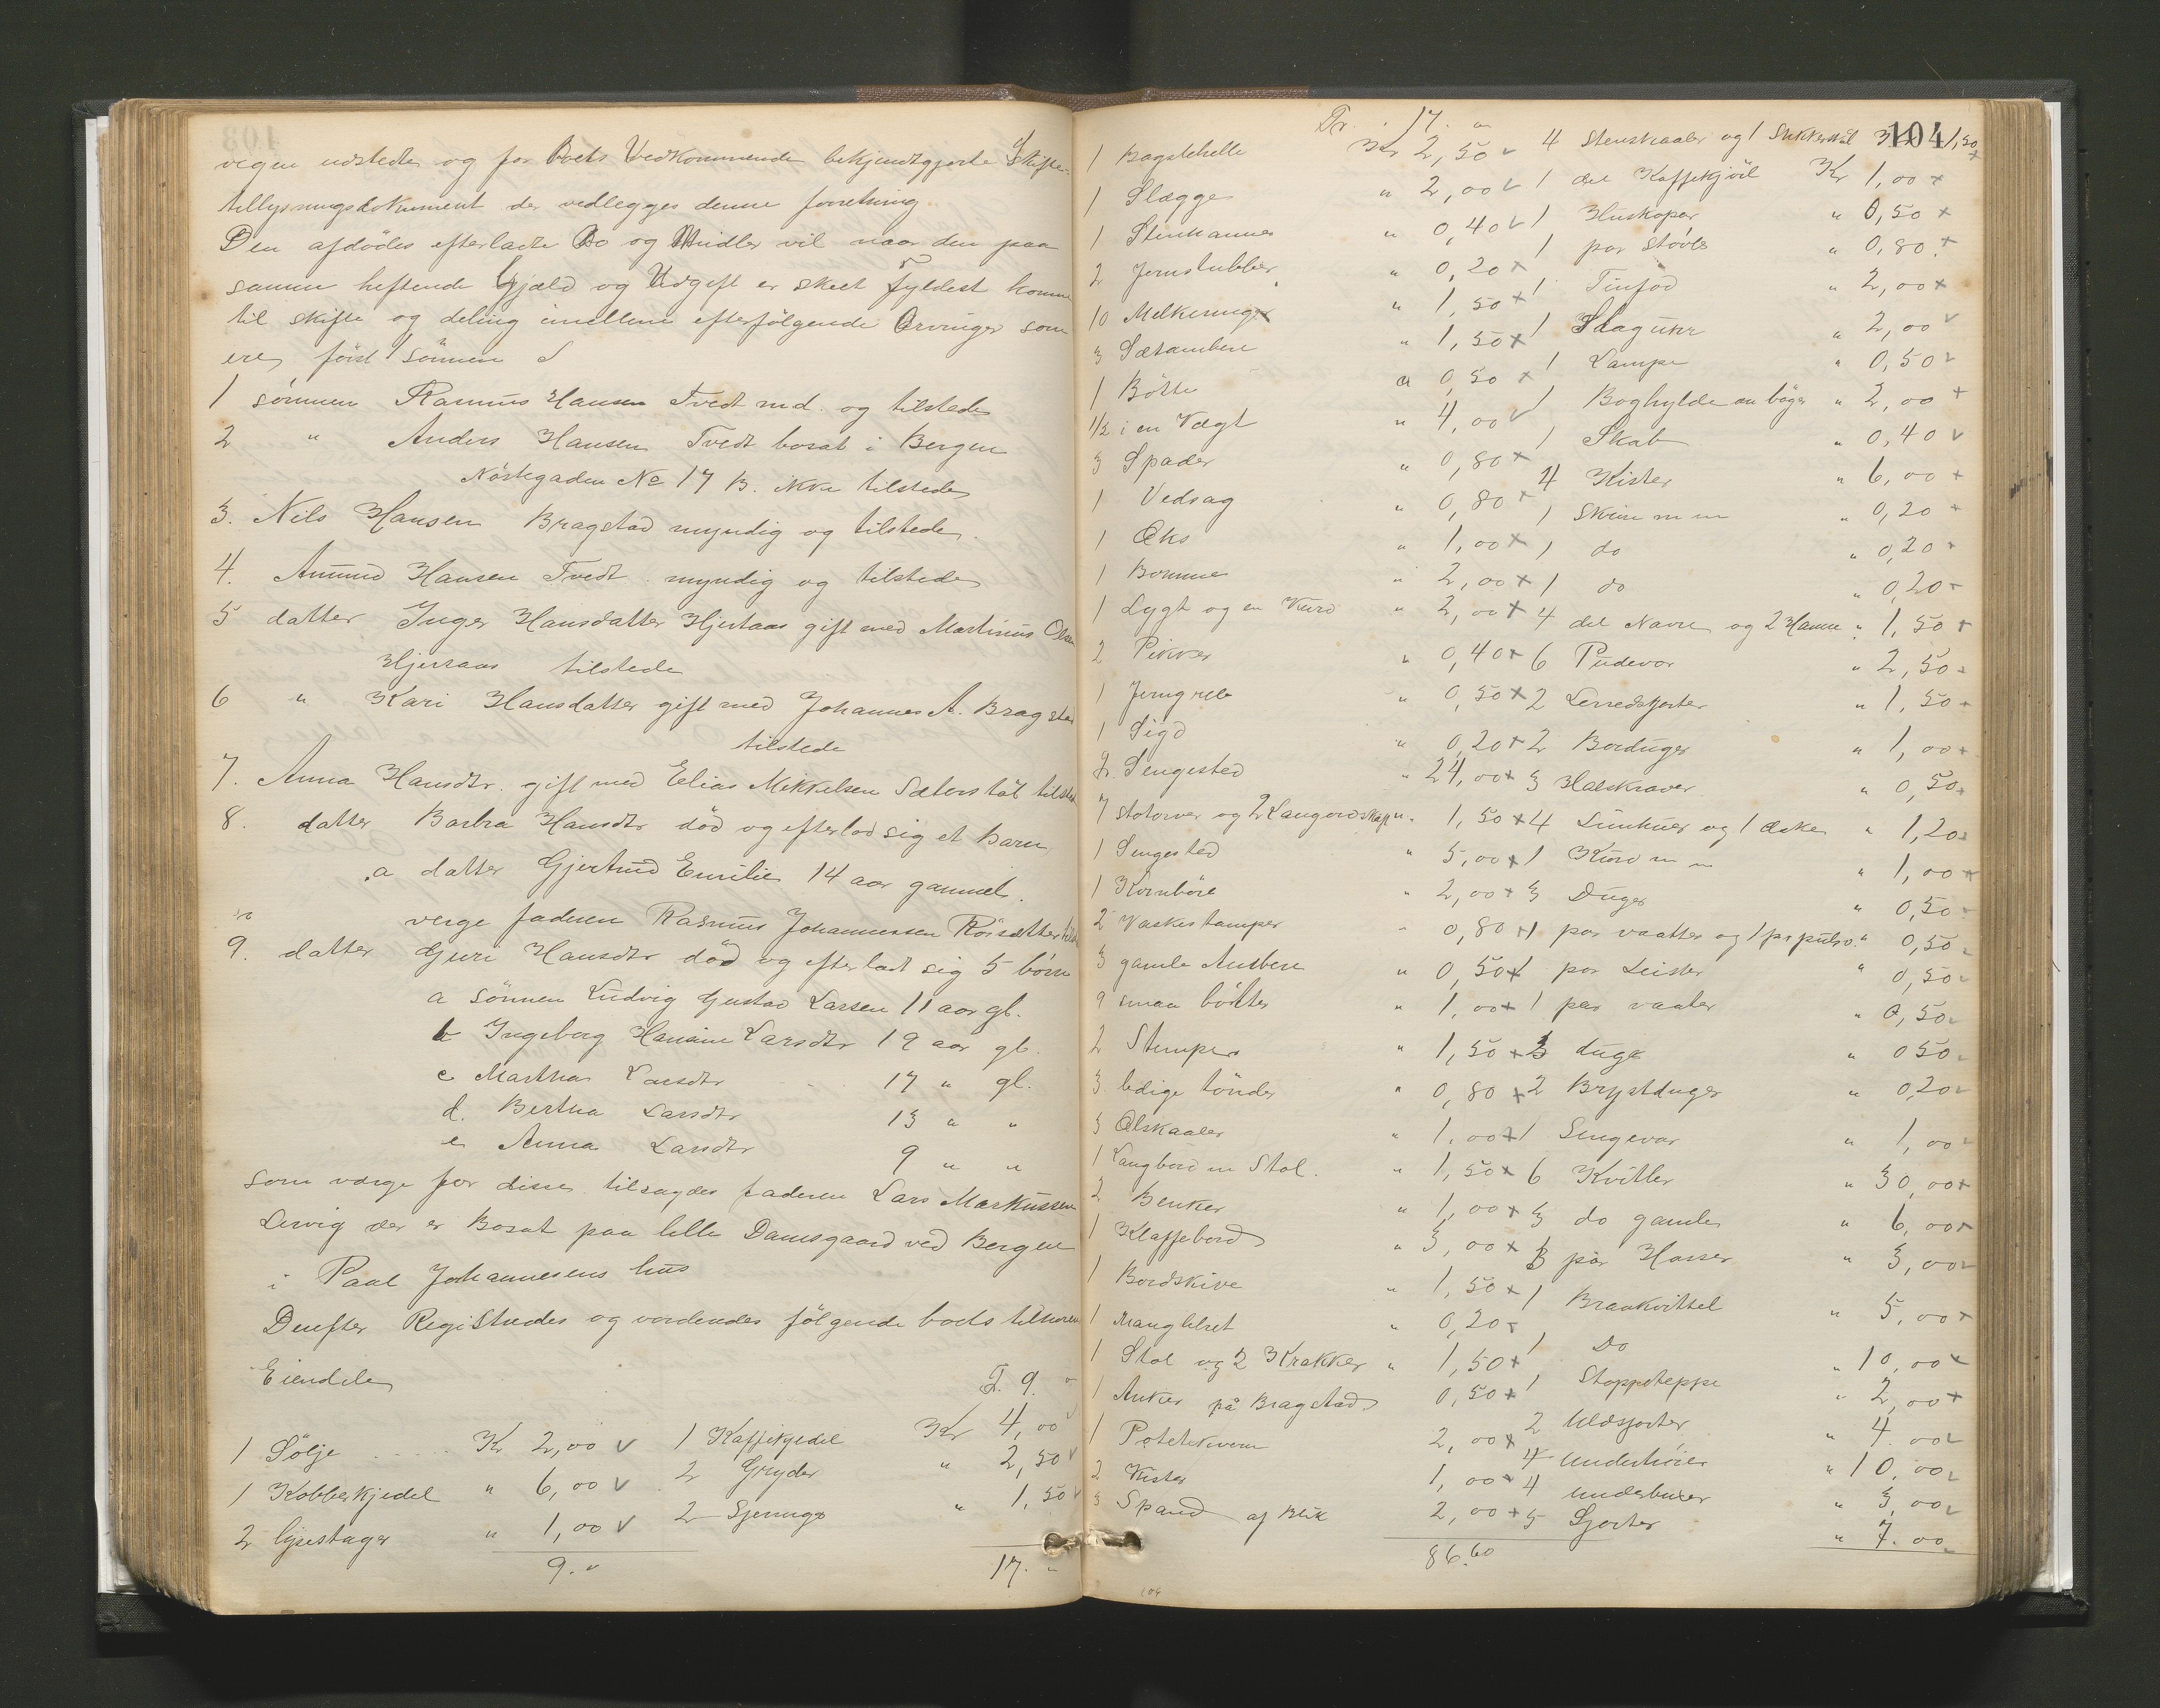 vegen udstedte og for Boets Vedkommende bekjendtgjorte Skifte-
tillysningsdokument der vedlegges denne forretning
Den afdødes efterladte Bo og Midler vil naar den paa
samme heftende Gjæld og Udgift er skeet fyldest komme
til skifte og deling imellem efterfølgende Arvinger som
ere, først Sønnen
1 sønnen Rasmus Hansen Tvedt md. og tilstede
2 " Anders Hansen Tvedt bosat i Bergen
Nöstegaden No 17 B. ikke tilstede
3. Nils Hansen Bragstad myndig og tilstede.
4. Amund Hansen Tvedt myndig og tilstede
5 datter Inger Hansdatter Hjertaas gift med Martinus Olsen
Hjertaas tilstede
6 " Kari Hansdatter gift med Johannes A. Bragstad
tilstede
7. Anna Hansdtr. gift med Elias Mikkelsen Sæterstøl tilsted
8. datter Barbra Hansdtr død og efterlod sig et barn,
a datter Gjertrud Emilie 14 aar gammel.
verge faderen Rasmus Johannessen Rörsætter
9. datter Guri Hansdtr död og efterladt sig 5 börn
a sönnen Ludvig Gustav Larsen 11 aar gl.
b Ingeborg Hansine Larsdtr 19 aar gl.
c Martha Larsdtr 17 " gl.
d. Bertha Larsdtr 13 " "
e Anna Larsdtr 9 " "
som værge for disse tilsagdes faderen Lars Markussen
Lervig der er Bosat paa lille Damsgaard ved Bergen
i Paul Johannesens hus
Derefter Registredes og vurderedes følgende boets tilhørende
Eiendele
T. 9. "
1 Sölje Kr 2,00 v 1 Kaffikjedel Kr 4,00 v
1 Kobberkjedel " 6,00 v 2 Gryder " 2,50 v
2 lysestager " 1,00 v 2 " 1,50 v
9. " 17. "
104
Tr. 17. "
1 Bagstehelle Kr 2,50 v 4 Stenskaaler og 1 Sukkerskål Kr 1,50 x
1 Slægge " 2,00 v 1 del Kaffekjöil Kr 1,00 x
1 Stenkanne " 0,40 v 1 " 0,50 x
2 Jernstubber " 0,20 x 1 par støvle " 0,80 x
10 Melkeringe " 1,50 x 1 Tinfad " 2,00 x
3 Sætambere " 1,50 x 1 Slagur " 2,00 v
1 Bötte " 0,50 x 1 Lampe " 0,50 v
1/2 i en Vægt " 4,00 v 1 Boghylde m böger " 2,00 x
3 Spader " 0,80 x 1 Skab " 0,40 v
1 Vedsag " 0,80 x 4 Kister " 6,00 x
1 Öks " 1,00 x 1 Skrin m m " 0,20 x
1 Bomme " 2,00 x 1 do " 0,20 x
1 Lygt og en Kurv " 2,00 x 1 do " 0,20
2 Pikker " 0,40 x 4 del Navre og 2 Hamre " 1,50 x
1 Jerngreb " 0,50 x 6 Pudevar " 2,50
1 Sigd " 0,20 x 2 Lerredskjorter " 1,50
2 Sengested " 24,00 x 2 Borduger " 1,00 x
7 og 2 " 1,50 x 3 Halskraver " 0,50
1 Sengested " 5,00 x 4 Linhuer og 1 æske " 1,20
1 Kornböre " 2,00 x 1 Kurv m m " 1,00 x
2 Vaskestamper " 0,80 x 3 Duger " 0,50
3 gamle Ambere " 0,50 x 1 par vaatter og 1 pr pulsv. " 0,50
9 smaa bötter " 1,00 x 1 par Leister " 0,50
2 Stamper " 1,50 x 1 par vaater " 0,50
3 ledige tönder " 0,80 x 3 duge " 0 50
3 Ölskaaler " 1,00 x 2 Brystduger " 0,20
1 Langbord m Stol. " 1,50 x 1 Sengevar " 1,00
2 Benker " 1,00 x 6 Kvitler " 30,00 x
1 Klaffebord " 3,00 x 3 do gamle " 6,00
1 Bordskive " 1,50 x 3 par Hoser " 3,00
1 Manglebret " 0,20 1 Braakvittel " 5,00 x
1 Stol og 2 Krakker " 1,50 x 1 Do " 10,00 x
1 Anker på Bragstad 0,50 x 1 Stoppeteppe " 2,00 x
1 Potetekvern 2,00 x 2 Uldsjorter " 4.00
2 Kister 1,00 x 4 Undertröier " 10,00
3 Spand af Blik 2,00 x 4 underbuxer " 3,00
5 Sjorter " 7.00
86.60
104